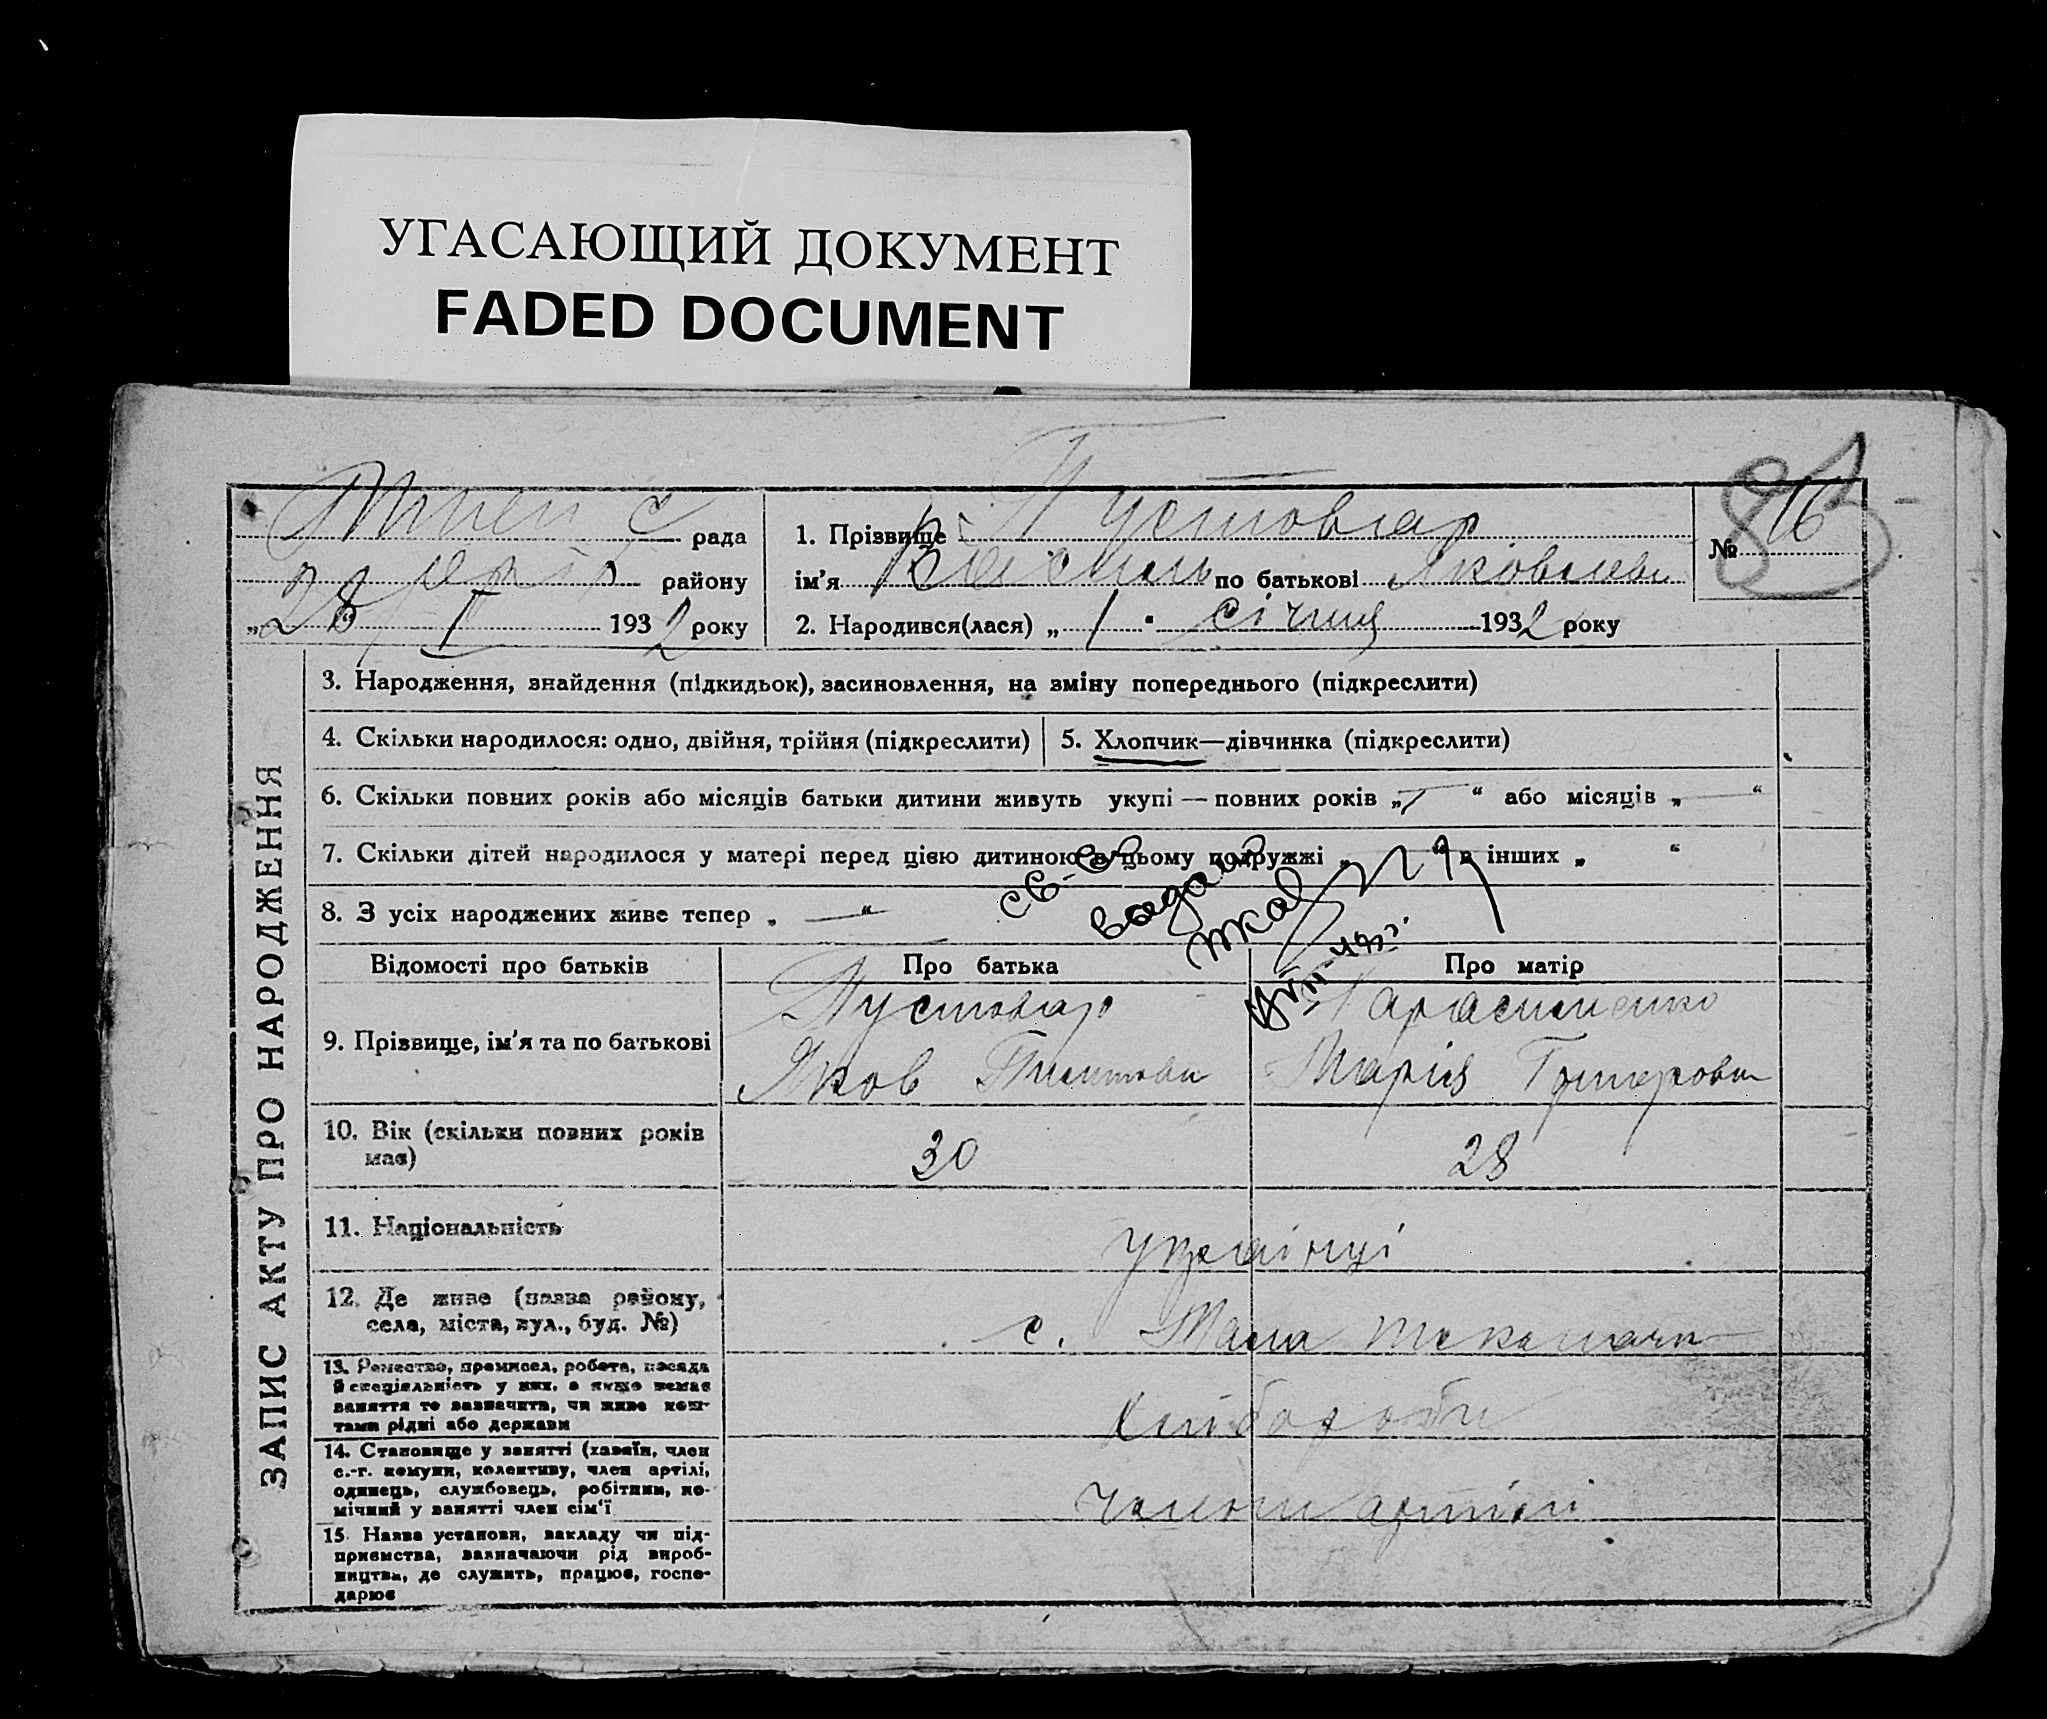 УГАСАЮЩИЙ ДОКУМЕНТ
FADED DOCUMENT
рада
району
„28 I 1932 року
1. Прізвище Пустовар
ім'я Василь по батькові Яковлевич
2. Народився(лася) „1" січня 1932 року
№ 16
83
ЗАПИС АКТУ ПРО НАРОДЖЕННЯ
3. Народження, знайдення (підкидьок), засиновлення, на зміну попереднього (підкреслити)
4. Скільки народилося: одно, двійня, трійня (підкреслити)
5. Хлопчик—дівчинка (підкреслити)
6. Скільки повних років або місяців батьки дитини живуть укупі — повних років „ “ або місяців „—“
7. Скільки дітей народилося у матері перед цією дитиною в цьому подружжі „ “ в інших „ “
8. З усіх народжених живе тепер „ — “
Відомості про батьків
Про батька
Про матір
9. Прізвище, ім'я та по батькові
Пустовар
Яков
Марія
10. Вік (скільки повних років має)
30
28
11. Національність
українці
12. Де живе (назва району, села, міста, вул., буд. №)
с. Мала
13. Ремество, промисел, робота, посада
й спеціяльність у них, а якщо немає
заняття то зазначити, чи живе кош-
тами рідні або держави
Хлібороби
14. Становище у занятті (хазяїн, член
с.-г. комуни, колективу, член артілі,
одинець, службовець, робітник, по-
мічний у занятті член сім'ї
члени артілі
15. Назва установи, закладу чи під-
приємства, зазначаючи рід вироб-
ництва, де служить, працює, госпо-
дарює